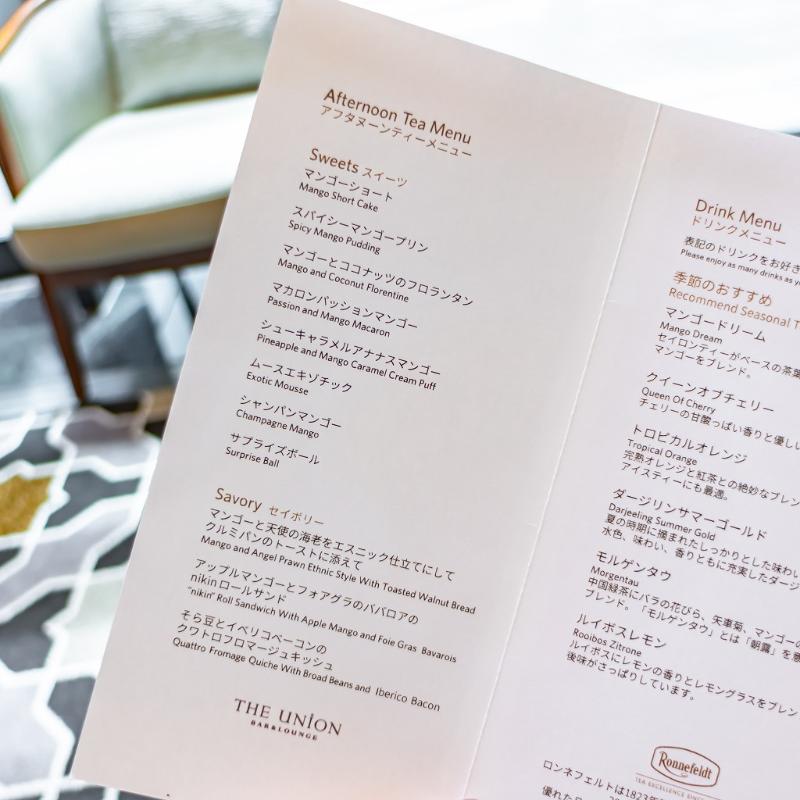 Afternoon Tea Menu
アフタヌーンティーメニュー
Sweets スイーツ
マンゴーショート
Mango Short Cake
スパイシーマンゴープリン
Spicy Mango Pudding
マンゴーとココナッツのフロランタン
Mango and Coconut Florentine
マカロンパッションマンゴー
Passion and Mango Macaron
シューキャラメルアナナスマンゴー
Pineapple and Mango Caramel Cream Puff
ムースエキゾチック
Exotic Mousse
シャンパンマンゴー
Champagne Mango
サプライズボール
Surprise Ball
Savory セイボリー
マンゴーと天使の海老をエスニック仕立てにして
クルミパンのトーストに添えて
Mango and Angel Prawn Ethnic Style With Toasted Walnut Bread
アップルマンゴーとフォアグラのババロアの
nikinロールサンド
"nikin" Roll Sandwich With Apple Mango and Foie Gras Bavarois
そら豆とイベリコベーコンの
クワトロフロマージュキッシュ
Quattro Fromage Quiche With Broad Beans and Iberico Bacon
THE UNION
BAR&LOUNGE
Drink Menu
ドリンクメニュー
表記のドリンクをお好き
Please enjoy as many drinks as
季節のおすすめ
Recommend Seasonal
マンゴードリーム
Mango Dream
セイロンティーがベースの茶葉
マンゴーをブレンド。
クイーンオブチェリー
Queen Of Cherry
チェリーの甘酸っぱい香りと優しい
トロピカルオレンジ
Tropical Orange
完熟オレンジと紅茶との絶妙なブレン
アイスティーにも最適。
ダージリンサマーゴールド
Darjeeling Summer Gold
夏の時期に摘まれたしっかりとした味わい
水色、味わい、香りともに充実したダージ
モルゲンタウ
Morgentau
中国緑茶にバラの花びら、矢車菊、マンゴーの
ブレンド。「モルゲンタウ」とは「朝露」を意
ルイボスレモン
Rooibos Zitrone
ルイボスにレモンの香りとレモングラスをブレン
後味がさっぱりしています。
Ronnefeldt
TEA EXCELLENCE SINCE
ロンネフェルトは1823年
優れた